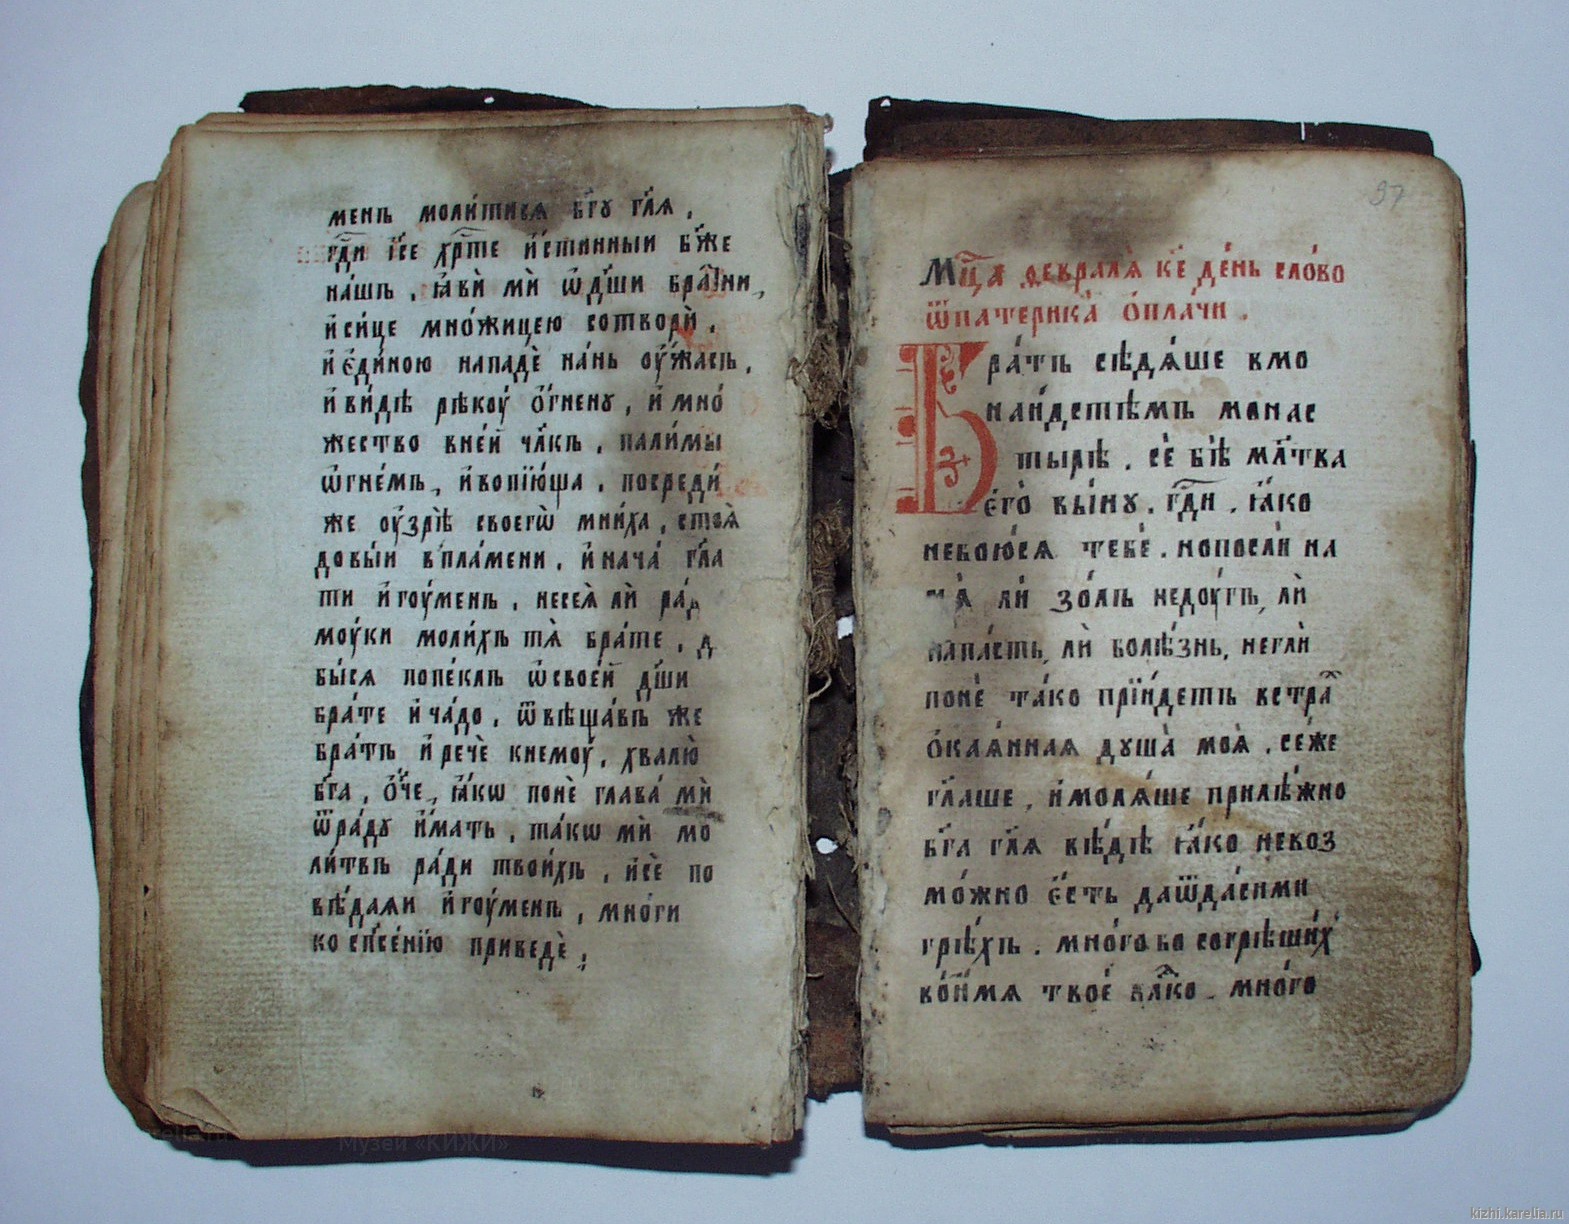 менъ молитися бг҃у гл҃я,
гд҇и і҃се хрт҇е и҆́стинныи бж҃е
на́шъ, ꙗ҆ви̇̀ ми̇̀ ѡ҆дш҃и бра́тни,
и҆си́це мно́жицею сотвори̇̀,
и҆є҆ди́ною нападѐ на́нь оу҆́жасъ,
и҆ви́дѣ рѣкоу́ о҆́гнену, и҆мно́
жество вне́й чл҃къ, пали́мы
ѡ҆гне́мъ, и҆вопїю́ща, посреди́
же оу҆зрѣ̀ своегѡ̀ мни́ха, стоя̀
до вы́и в пла́мени, и҆нача́ гл҃а
ти и҆гоу́менъ, несея̀ ли̇̀ ра́д
моу́ки моли́хъ тя̀ бра́те, д
бы́ся попе́клъ ѡ҆своей дш҃и
бра́те и҆ча́до, ѿвѣща́въ же
бра́тъ и҆речѐ кнемоу́, хвалю̀
бг҃а, ѻ҆́ч҃е, ꙗ҆́кѡ понѐ глава́ ми̇̀
ѿра́ду и҆́мать, та́кѡ ми̇̀ мо
ли́твъ ра́ди твои́хъ, и҆сѐ по
вѣ́даяи и҆гоу́менъ, мно́ги
ко сп҃се́нїю приведѐ;
97
Мц҇а февраля̀ к҃е де́нь сло́во
ѿпатерика̀ о҆пла́чи.
Бра́тъ сѣдя́ше вмо
наи́дстѣмъ монас
тырѣ̀. сѐ бѣ̀ мл҃тва
є҆го̀ вы́ину. гд҇и. ꙗ҆́ко
небою́ся тебѐ. нопосли̇̀ на
мя̀ ли̇̀ зо́лъ недоу́гъ, ли̇̀
напа́сть, ли̇̀ болѣ́знь, негли̇̀
понѐ та́ко прїи́детъ встра҇
о҆кая́нная душа̀ моя̀. се́же
гл҃аше, и҆моля́ше прилѣ́жно
бг҃а гл҃я вѣ́дѣ ꙗ҆́ко невоз
мо́жно є҆́сть даѿда́сими
грѣ́хъ. мно́го бо согрѣши́х
во́имя твоѐ влⷣко. мно́го
Музей «КИЖИ»
kizhi.karelia.ru